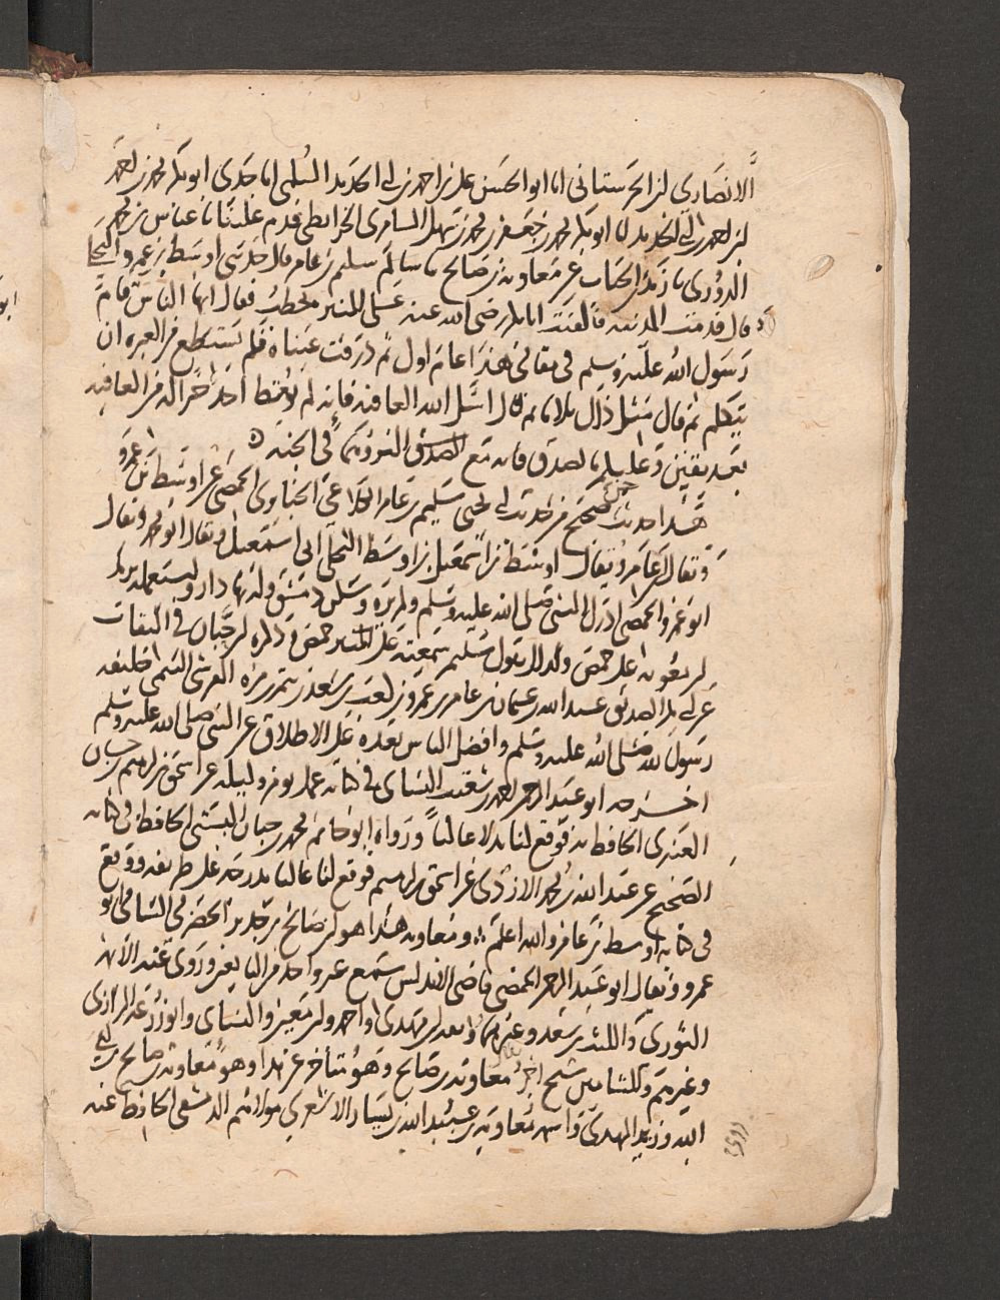 الانصاري ابن الحرستاني انا ابو الحسن علي بن احمد بن ابي الحديد السلمي انا جدي ابو بكر محمد بن احمد
ابن احمد بن ابي الحديد انا ابو بكر محمد بن جعفر بن محمد بن سهل السامري الخرايطي قدم علينا نا عباس بن محمد
الدوري نا زيد بن الحباب عن معاوية بن صالح نا سليم بن عامر قال حدثني اوسط بن عمرو البجلي
قال قدمت المدينة فالفيت ابا بكر رضي الله عنه على المنبر يخطب فقال ايها الناس قام
رسول الله عليه وسلم في مقامي هذا عام اول ثم ذرفت عيناه فلم يستطع من العبرة ان
يتكلم ثم قال مثل ذلك ثلاثا ثم قال اسئل الله العافية فانه لم يعط احد خيرا له من العافية
بعد يقين وعليكم بالصدق فانه مع البر وهما في الجنة
هذا حديث صحيح من حديث ابي يحيى سليم بن عامر الكلاعي الخبايري الحمصي عن اوسط بن عمرو
ويقال ابن عامر ويقال اوسط بن اسمعيل بن اوسط البجلي ابي اسمعيل ويقال ابو محمد ويقال
ابو عمرو الحمصي ادرك النبي صلى الله عليه وسلم ولم يره وسكن دمشق وله بها دار واستعمله يزيد
ابن معوية على حمص ولذلك يقول سليم سمعته على المنبر حمص وذكره ابن حبان في الثقات
عن ابي بكر الصديق عبد الله بن عثمان بن عامر بن عمرو بن كعب بن سعد بن تيم بن مره القرشي التيمي خليفة
رسول الله صلى الله عليه وسلم وافضل الناس بعده على الاطلاق عن النبي صلى الله عليه وسلم
اخرجه ابو عبد الرحمن احمد بن شعيب النسائي في كتابه عمل يوم وليلة عن
العنبري الحافظ به فوقع لنا بدلا عاليا ورواه ابو حاتم محمد بن حبان البستي الحافظ في كتابه
الصحيح عن عبد الله بن محمد الازدي عن اسحق بن ابرهيم فوقع لنا عاليا بدرجة على طريقه ووقع
في كتابه اوسط بن عامر والله اعلم ومعاوية هذا هو ابن صالح بن حدير الحضرمي الشامي ابو
عمرو ويقال ابو عبد الرحمن الحمصي قاضي الاندلس سمع غير واحد من التابعين وروى عنه الائمة
الثوري والليث بن سعد وغيرهما
وغيرهم وللشاميين شيخ اخر يقال معاوية بن صالح وهو متأخر عن هذا وهو معاوية بن صالح بن ابي
عبيد الله بن يسار الاشعري مولاهم الدمشقي الحافظ عنه